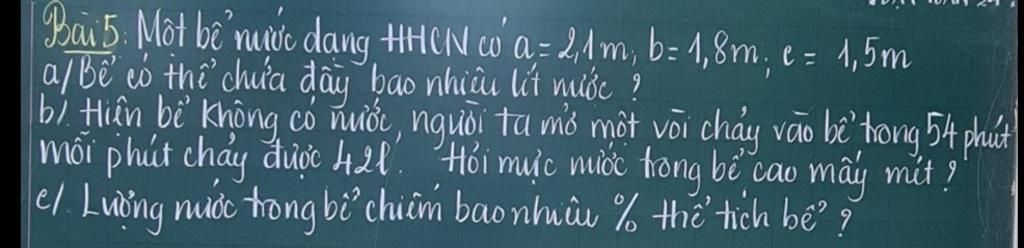 Bài 5: Một bể nước dạng HHCN có a = 2,1m, b = 1,8m; c = 1,5m
a/ Bể có thể chứa đầy bao nhiêu lít nước ?
b/. Hiện bể không có nước, người ta mở một vòi chảy vào bể trong 54 phút
mỗi phút chảy được 42l. Hỏi mực nước trong bể cao mấy mét ?
c/. Lượng nước trong bể chiếm bao nhiêu % thể tích bể ?